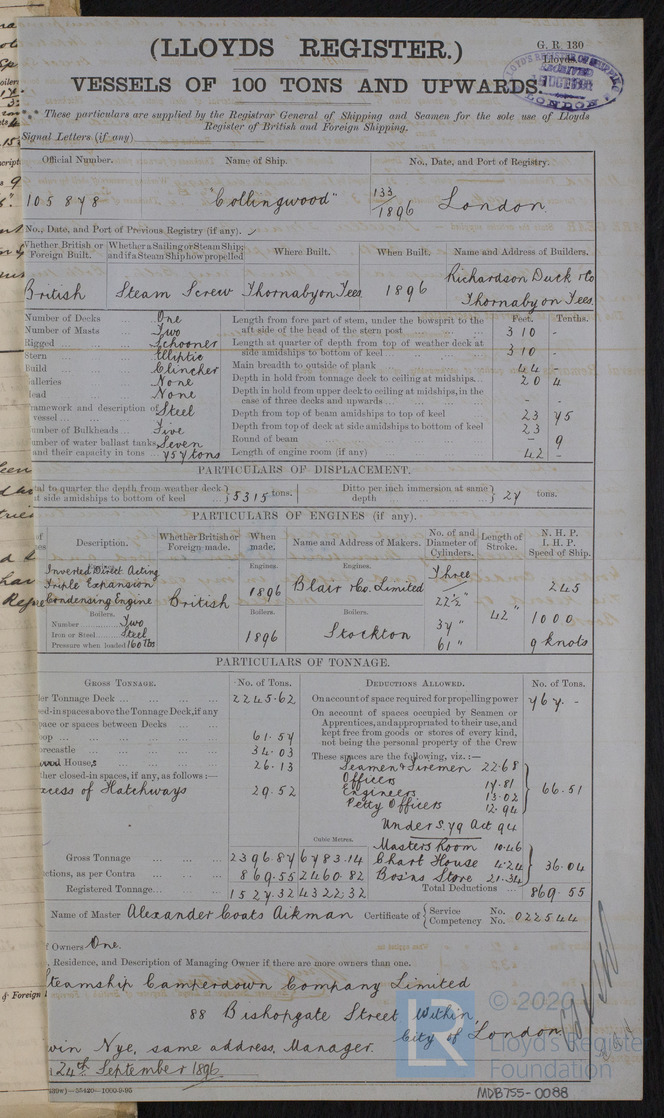 (LLOYDS REGISTER.)
G. R. 130
Lloyds.
VESSELS OF 100 TONS AND UPWARDS.
LONDON
*** These particulars are supplied by the Registrar General of Shipping and Seamen for the sole use of Lloyds
Register of British and Foreign Shipping.
Signal Letters (if any)
Official Number. Name of Ship. No., Date, and Port of Registry.
105878 "Collingwood" 133/1896 London.
No., Date, and Port of Previous Registry (if any).
Whether British or Foreign Built. Whether a Sailing or Steam Ship; and if a Steam Ship how propelled Where Built. When Built. Name and Address of Builders.
British Steam Screw Thornaby on Tees 1896 Richardson Duck & Co
Thornaby on Tees.
Feet. Tenths.
Number of Decks One
Number of Masts Two
Rigged Schooner
Stern Elliptic
Build Clincher
Galleries None
Head None
Framework and description of vessel Steel
Number of Bulkheads Five
Number of water ballast tanks Seven
and their capacity in tons 757 tons
Length from fore part of stem, under the bowsprit to the
aft side of the head of the stern post 310 -
Length at quarter of depth from top of weather deck at
side amidships to bottom of keel 310 -
Main breadth to outside of plank 44 -
Depth in hold from tonnage deck to ceiling at midships 20 4
Depth in hold from upper deck to ceiling at midships, in the
case of three decks and upwards - -
Depth from top of beam amidships to top of keel 23 75
Depth from top of deck at side amidships to bottom of keel 23
Round of beam - 9
Length of engine room (if any) 42 -
PARTICULARS OF DISPLACEMENT.
tal to quarter the depth from weather deck
at side amidships to bottom of keel 5315 tons. Ditto per inch immersion at same
depth 27 tons.
PARTICULARS OF ENGINES (if any).
of Description. Whether British or Foreign made. When made. Name and Address of Makers. No. of and Diameter of Cylinders. Length of Stroke. N. H. P. I. H. P. Speed of Ship.
Engines. Engines.
Inverted Direct Acting
Triple Expansion
Condensing Engine
British 1896 Blair & Co. Limited
Three
22½"
37"
61"
42"
245
1000
9 knots
Boilers. Boilers. Boilers.
Number Two
Iron or Steel Steel
Pressure when loaded 160 lbs
1896 Stockton
PARTICULARS OF TONNAGE.
GROSS TONNAGE. No. of Tons. DEDUCTIONS ALLOWED. No. of Tons.
er Tonnage Deck 2245.62
ed-in spaces above the Tonnage Deck, if any
pace or spaces between Decks
oop 61.57
orecastle 34.03
Houses 26.13
ther closed-in spaces, if any, as follows:—
xcess of Hatchways 29.52
On account of space required for propelling power 767. -
On account of spaces occupied by Seamen or
Apprentices, and appropriated to their use, and
kept free from goods or stores of every kind,
not being the personal property of the Crew
These spaces are the following, viz.:—
Seamen & Firemen 22.68
Officers 17.81
Engineers 13.02
Petty Officers 12.94
66.51
Under S. 79 Act 94
Masters Room 10.46
Chart House 4.24
Bosns Store 21.34
36.04
Cubic Metres.
Gross Tonnage 2396.87 6783.14
ctions, as per Contra 869.55 2460.82
Registered Tonnage 1527.32 4322.32
Total Deductions 869.55
Name of Master Alexander Coats Aikman Certificate of Service No.
Competency No. 022544
f Owners One.
, Residence, and Description of Managing Owner if there are more owners than one.
teamship Camperdown Company Limited
88 Bishopgate Street Within,
City of London
win Nye, same address, Manager.
24th September 1896
& Foreign
39w)—55420—1000-9-95
© 2020
LR
Lloyd's Register
Foundation
MDB755-0088